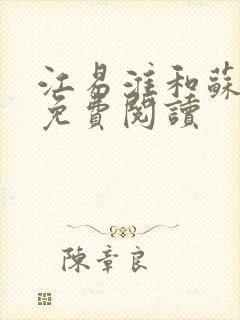 江易淮和蘇
免費閱讀
陳章良